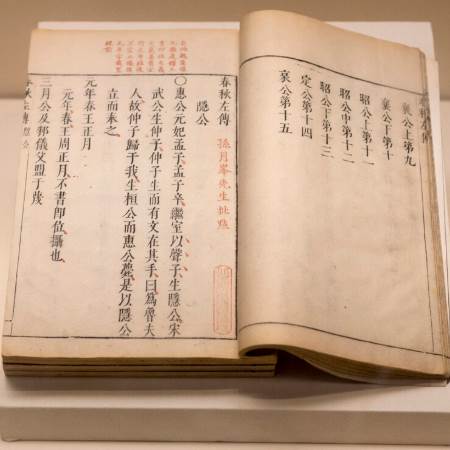 春秋左傳
襄公上第九
襄公下第十
昭公上第十一
昭公中第十二
昭公下第十三
定公第十四
哀公第十五
春秋左傳
孫月峯先生批點
隱公
〇惠公元妃孟子孟子卒繼室以聲子生隱公宋
武公生仲子仲子生而有文在其手曰為魯夫
人故仲子歸于我生桓公而惠公薨是以隱公
立而奉之
元年春王正月
元年春王周正月不書即位攝也
三月公及邾儀父盟于蔑
春秋左傳 隱公